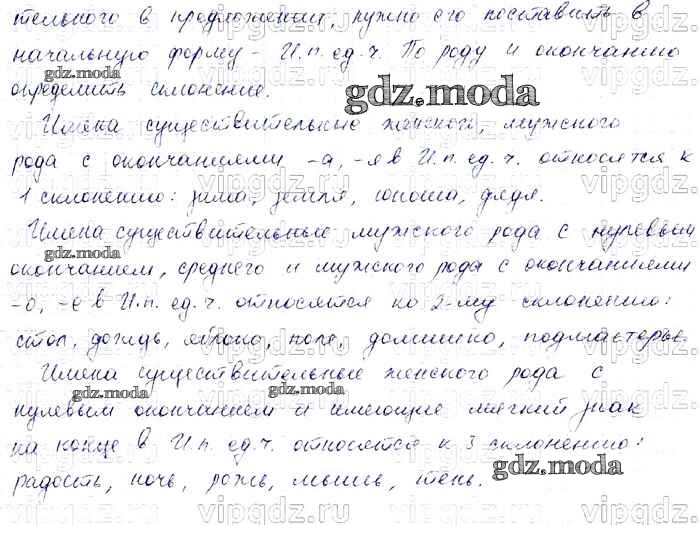 тельного в предложении, нужно его поставить в
начальную форму - И.п. ед.ч. По роду и окончанию
gdz.moda
определить склонение.
gdz.moda
Имена существительные женского, мужского
рода с окончаниями -а, -я в И.п. ед.ч. относятся к
1 склонению: зима, земля, юноша, дядя.
Имена существительные мужского рода с нулевым
gdz.moda
окончанием, среднего и мужского рода с окончаниями
-о, -е в И.п. ед.ч. относятся ко 2-му склонению:
стол, дождь, яблоко, поле, домишко, подмастерье.
Имена существительные женского рода с
gdz.moda gdz.moda
нулевым окончанием и имеющие мягкий знак
на конце в И.п. ед.ч. относятся к 3 склонению:
gdz.moda
радость, ночь, рожь, мышь, тень.
vipgdz.ru vipgdz.ru vipgdz.ru